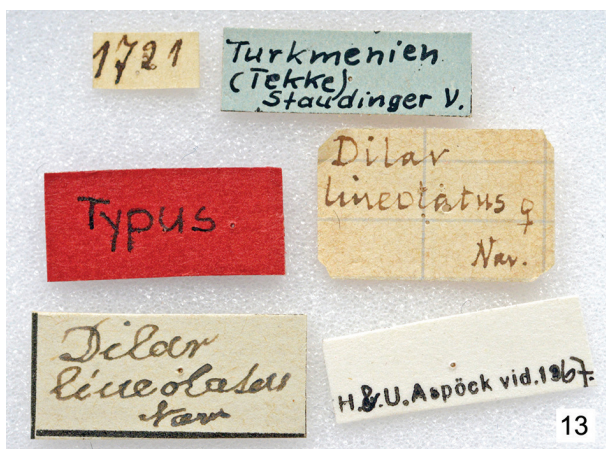 1721
Turkmenien
(Tekke)
Staudinger V.
Typus.
Dilar
lineolatus ♀
Nav.
Dilar
lineolatus
Nav
H.&.U.Aspöck vid.1967.
13